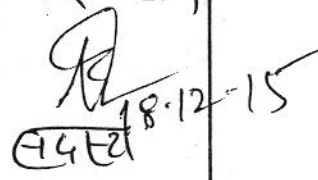 18.12.15
सदस्य